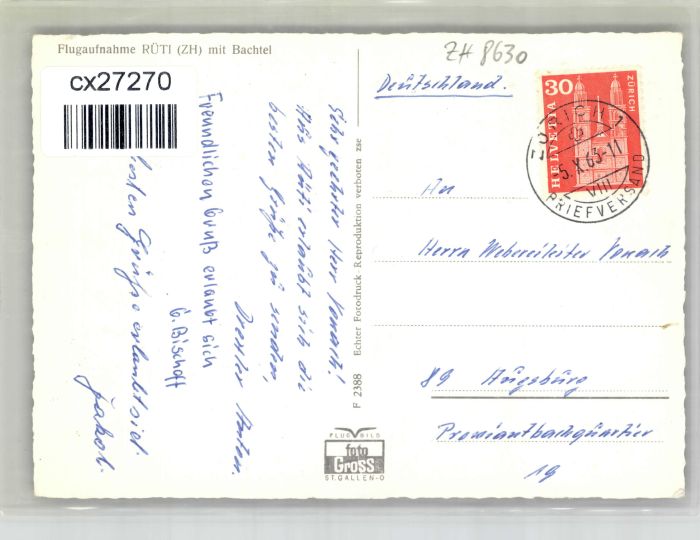 Flugaufnahme RÜTI (ZH) mit Bachtel
cx27270
ZH 8630
Deutschland.
30
HELVETIA
ZÜRICH
ZÜRICH 1
-5.X.63-11
VIII
BRIEFVERSAND
An
Herrn Webereileiter Vonach
89 Augsburg
Proviantbachquartier
19
Sehr geehrter Herr Vonach!
Aus Rüti erlaubt sich die
besten Grüße zu senden,
Anton.
Freundlichen Gruß erlaubt sich
G. Bischoff
besten Grüße erlaubt sich.
Jakob.
F 2388 Echter Fotodruck Reproduktion verboten zse
FLUGBILD
foto
GROSS
ST.GALLEN-O